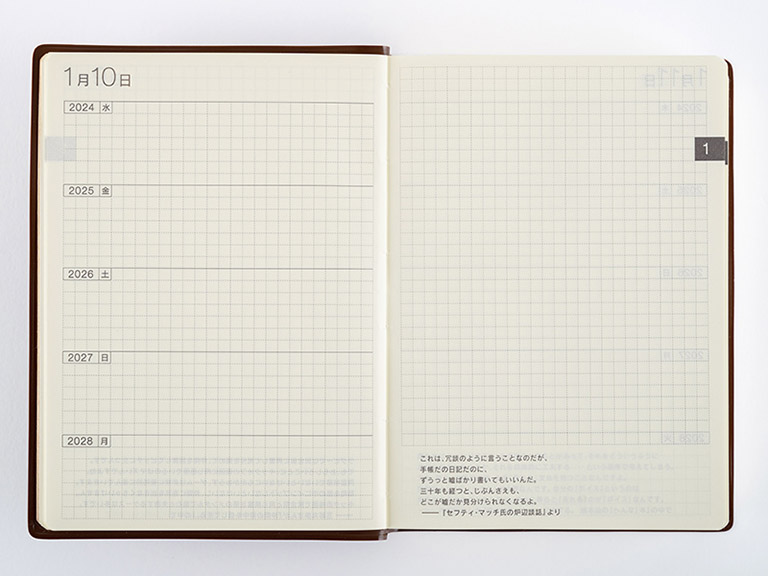 1月10日
2024 水
2025 金
2026 土
2027 日
2028 月
1
これは、冗談のように言うことなのだが、
手帳だの日記だのに、
ずうっと嘘ばかり書いてもいいんだ。
三十年も経つと、じぶんさえも、
どこが嘘だか見分けられなくなるよ。
——『セフティ・マッチ氏の炉辺談話』より